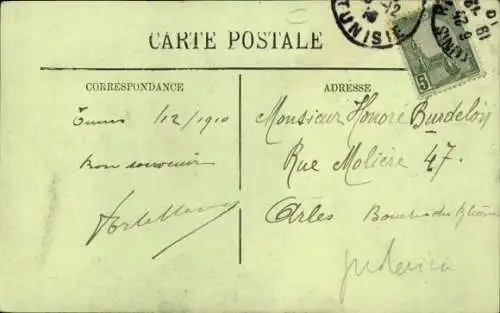 CARTE POSTALE
TUNISIE
5
CORRESPONDANCE
ADRESSE
Tunis 1/12/1910
Bon souvenir
Monsieur Honoré Burdelon
Rue Molière 47.
Arles Bouches du Rhône